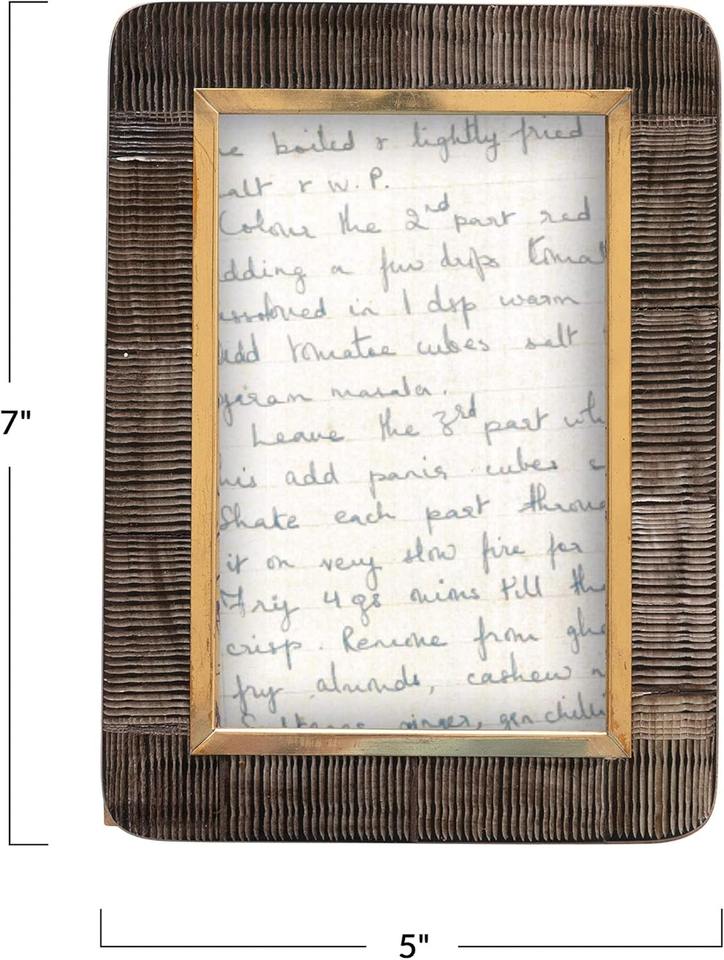 e boiled & lightly fried
alt & W.P.
Colour the 2nd part red
dding a few drops tomat
ssolved in 1 dsp warm
Add tomatoe cubes salt
garam masala.
Leave the 3rd part wh
his add panir cubes s
Shake each part throug
it on very slow fire for
Fry 4 ozs onions till the
crisp. Remove from ghe
fry almonds, cashew n
Sultanas, ginger, grn chilli
7"
5"